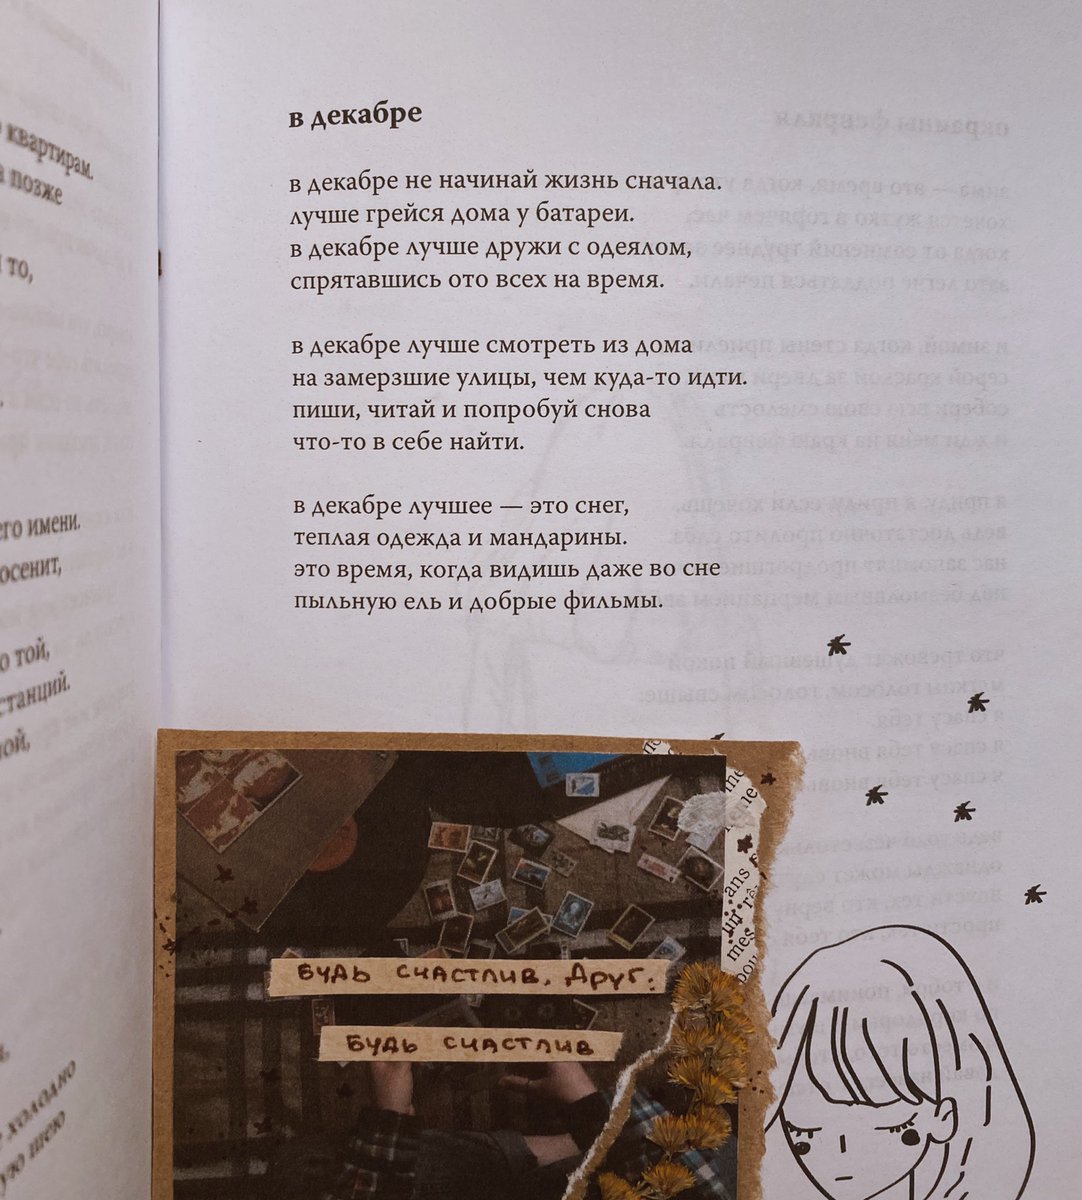 квартирам.
позже
то,
его имени.
осенит,
о той,
станций.
ной,
холодно
шею
в декабре
в декабре не начинай жизнь сначала.
лучше грейся дома у батареи.
в декабре лучше дружи с одеялом,
спрятавшись ото всех на время.
в декабре лучше смотреть из дома
на замерзшие улицы, чем куда-то идти.
пиши, читай и попробуй снова
что-то в себе найти.
в декабре лучшее — это снег,
теплая одежда и мандарины.
это время, когда видишь даже во сне
пыльную ель и добрые фильмы.
БУДЬ СЧАСТЛИВ, ДРУГ.
БУДЬ СЧАСТЛИВ
ans
mes